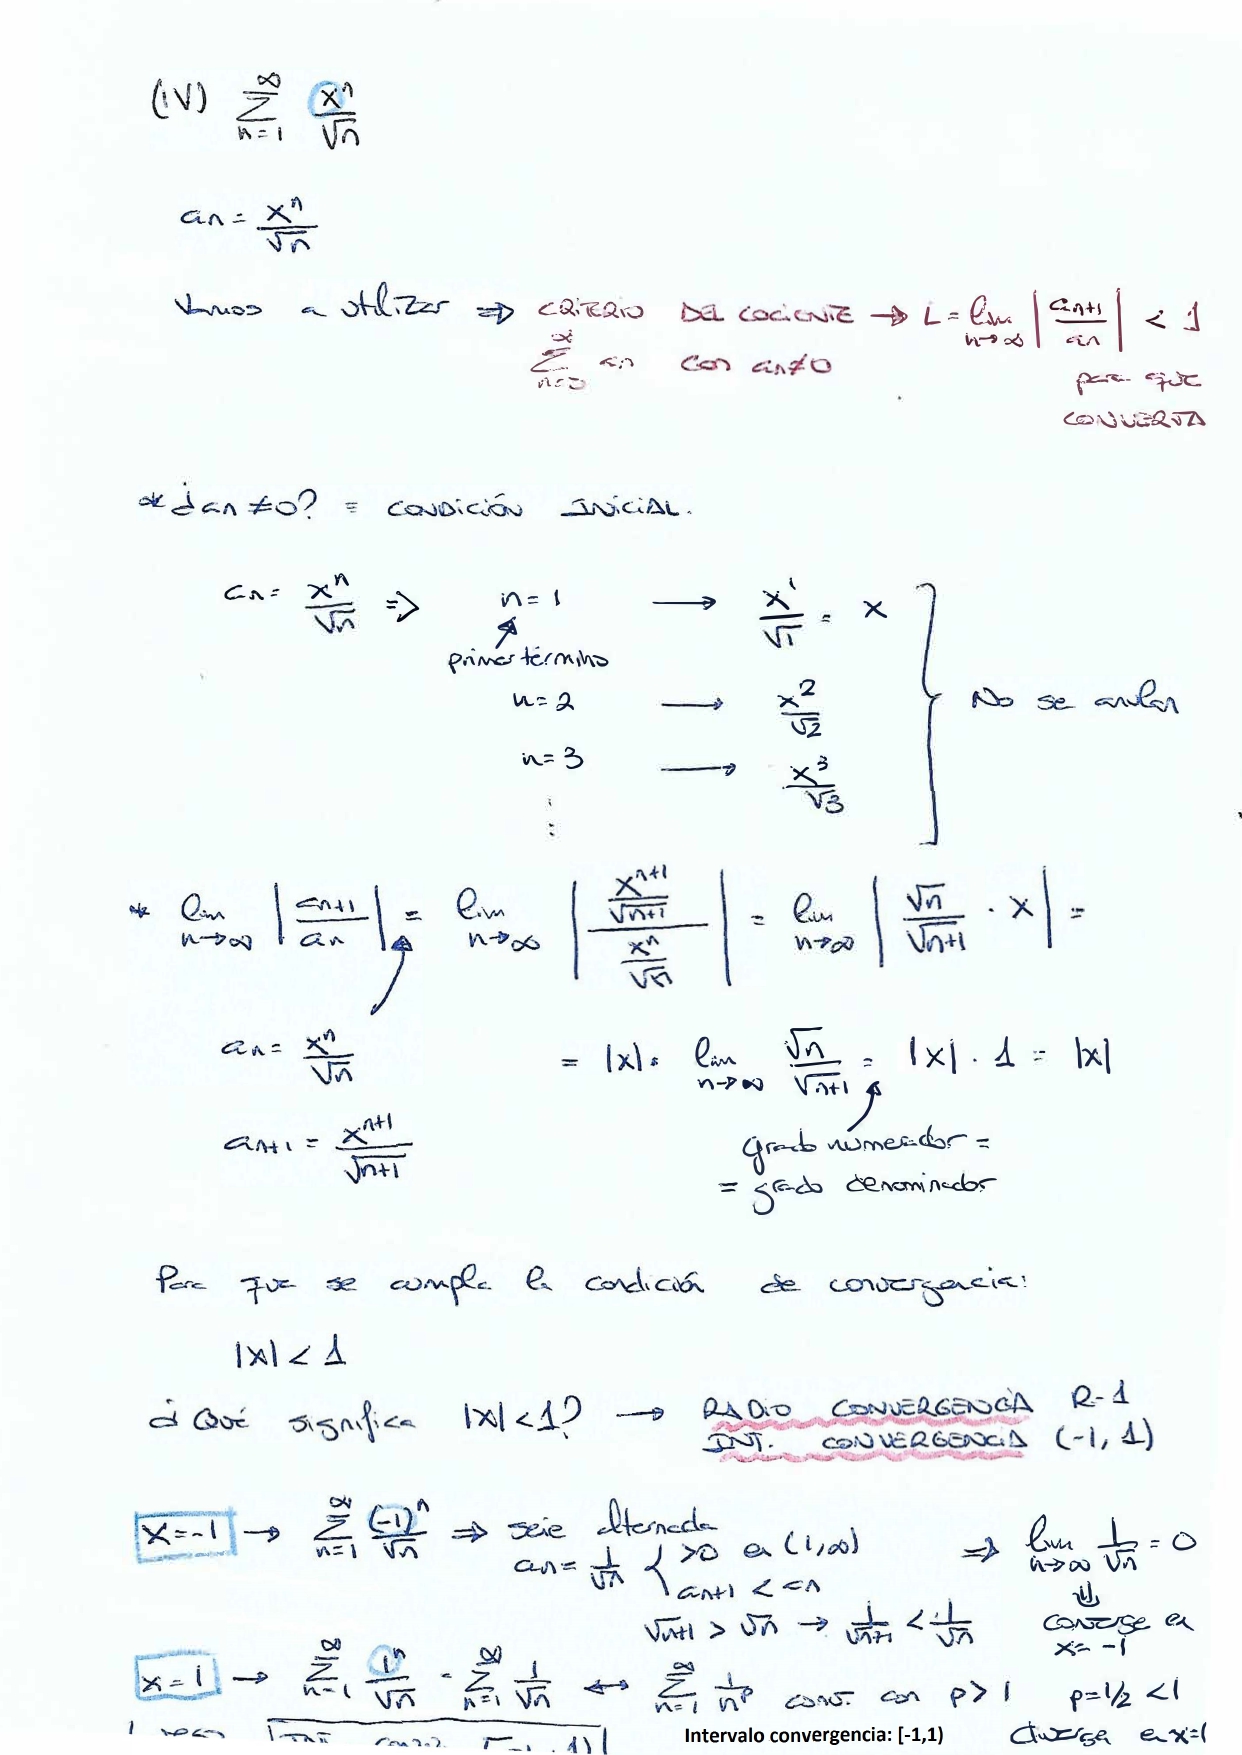 (iv) ∑_{n=1}^{∞} x^n/√n
an = x^n/√n
Vamos a utilizar ⇒ CRITERIO DEL COCIENTE → L = lim_{n→∞} |an+1/an| < 1
∑_{n=0}^{∞} an con an≠0 para que
CONVERJA
* ¿an≠0? = CONDICIÓN INICIAL.
an = x^n/√n ⇒ n=1 → x^1/√1 = x
primer término
n=2 → x^2/√2 } No se anulan
n=3 → x^3/√3
⋮
* lim_{n→∞} |an+1/an| = lim_{n→∞} |(x^{n+1}/√n+1)/(x^n/√n)| = lim_{n→∞} |√n/√n+1 · x| =
an = x^n/√n = |x| · lim_{n→∞} √n/√n+1 = |x| · 1 = |x|
an+1 = x^{n+1}/√n+1 grado numerador =
= grado denominador
Para que se cumpla la condición de convergencia:
|x| < 1
¿Qué significa |x|<1? → RADIO CONVERGENCIA R=1
INT. CONVERGENCIA (-1, 1)
x=-1 → ∑_{n=1}^{∞} (-1)^n/√n ⇒ serie alternada
an = 1/√n { >0 en (1,∞) ⇒ lim_{n→∞} 1/√n = 0
an+1 < an ⇓
√n+1 > √n → 1/√n+1 < 1/√n converge en
x=-1
x=1 → ∑_{n=1}^{∞} 1^n/√n = ∑_{n=1}^{∞} 1/√n ↔ ∑_{n=1}^{∞} 1/n^p conv. con p>1 p=1/2 <1
Intervalo convergencia: [-1,1) diverge en x=1